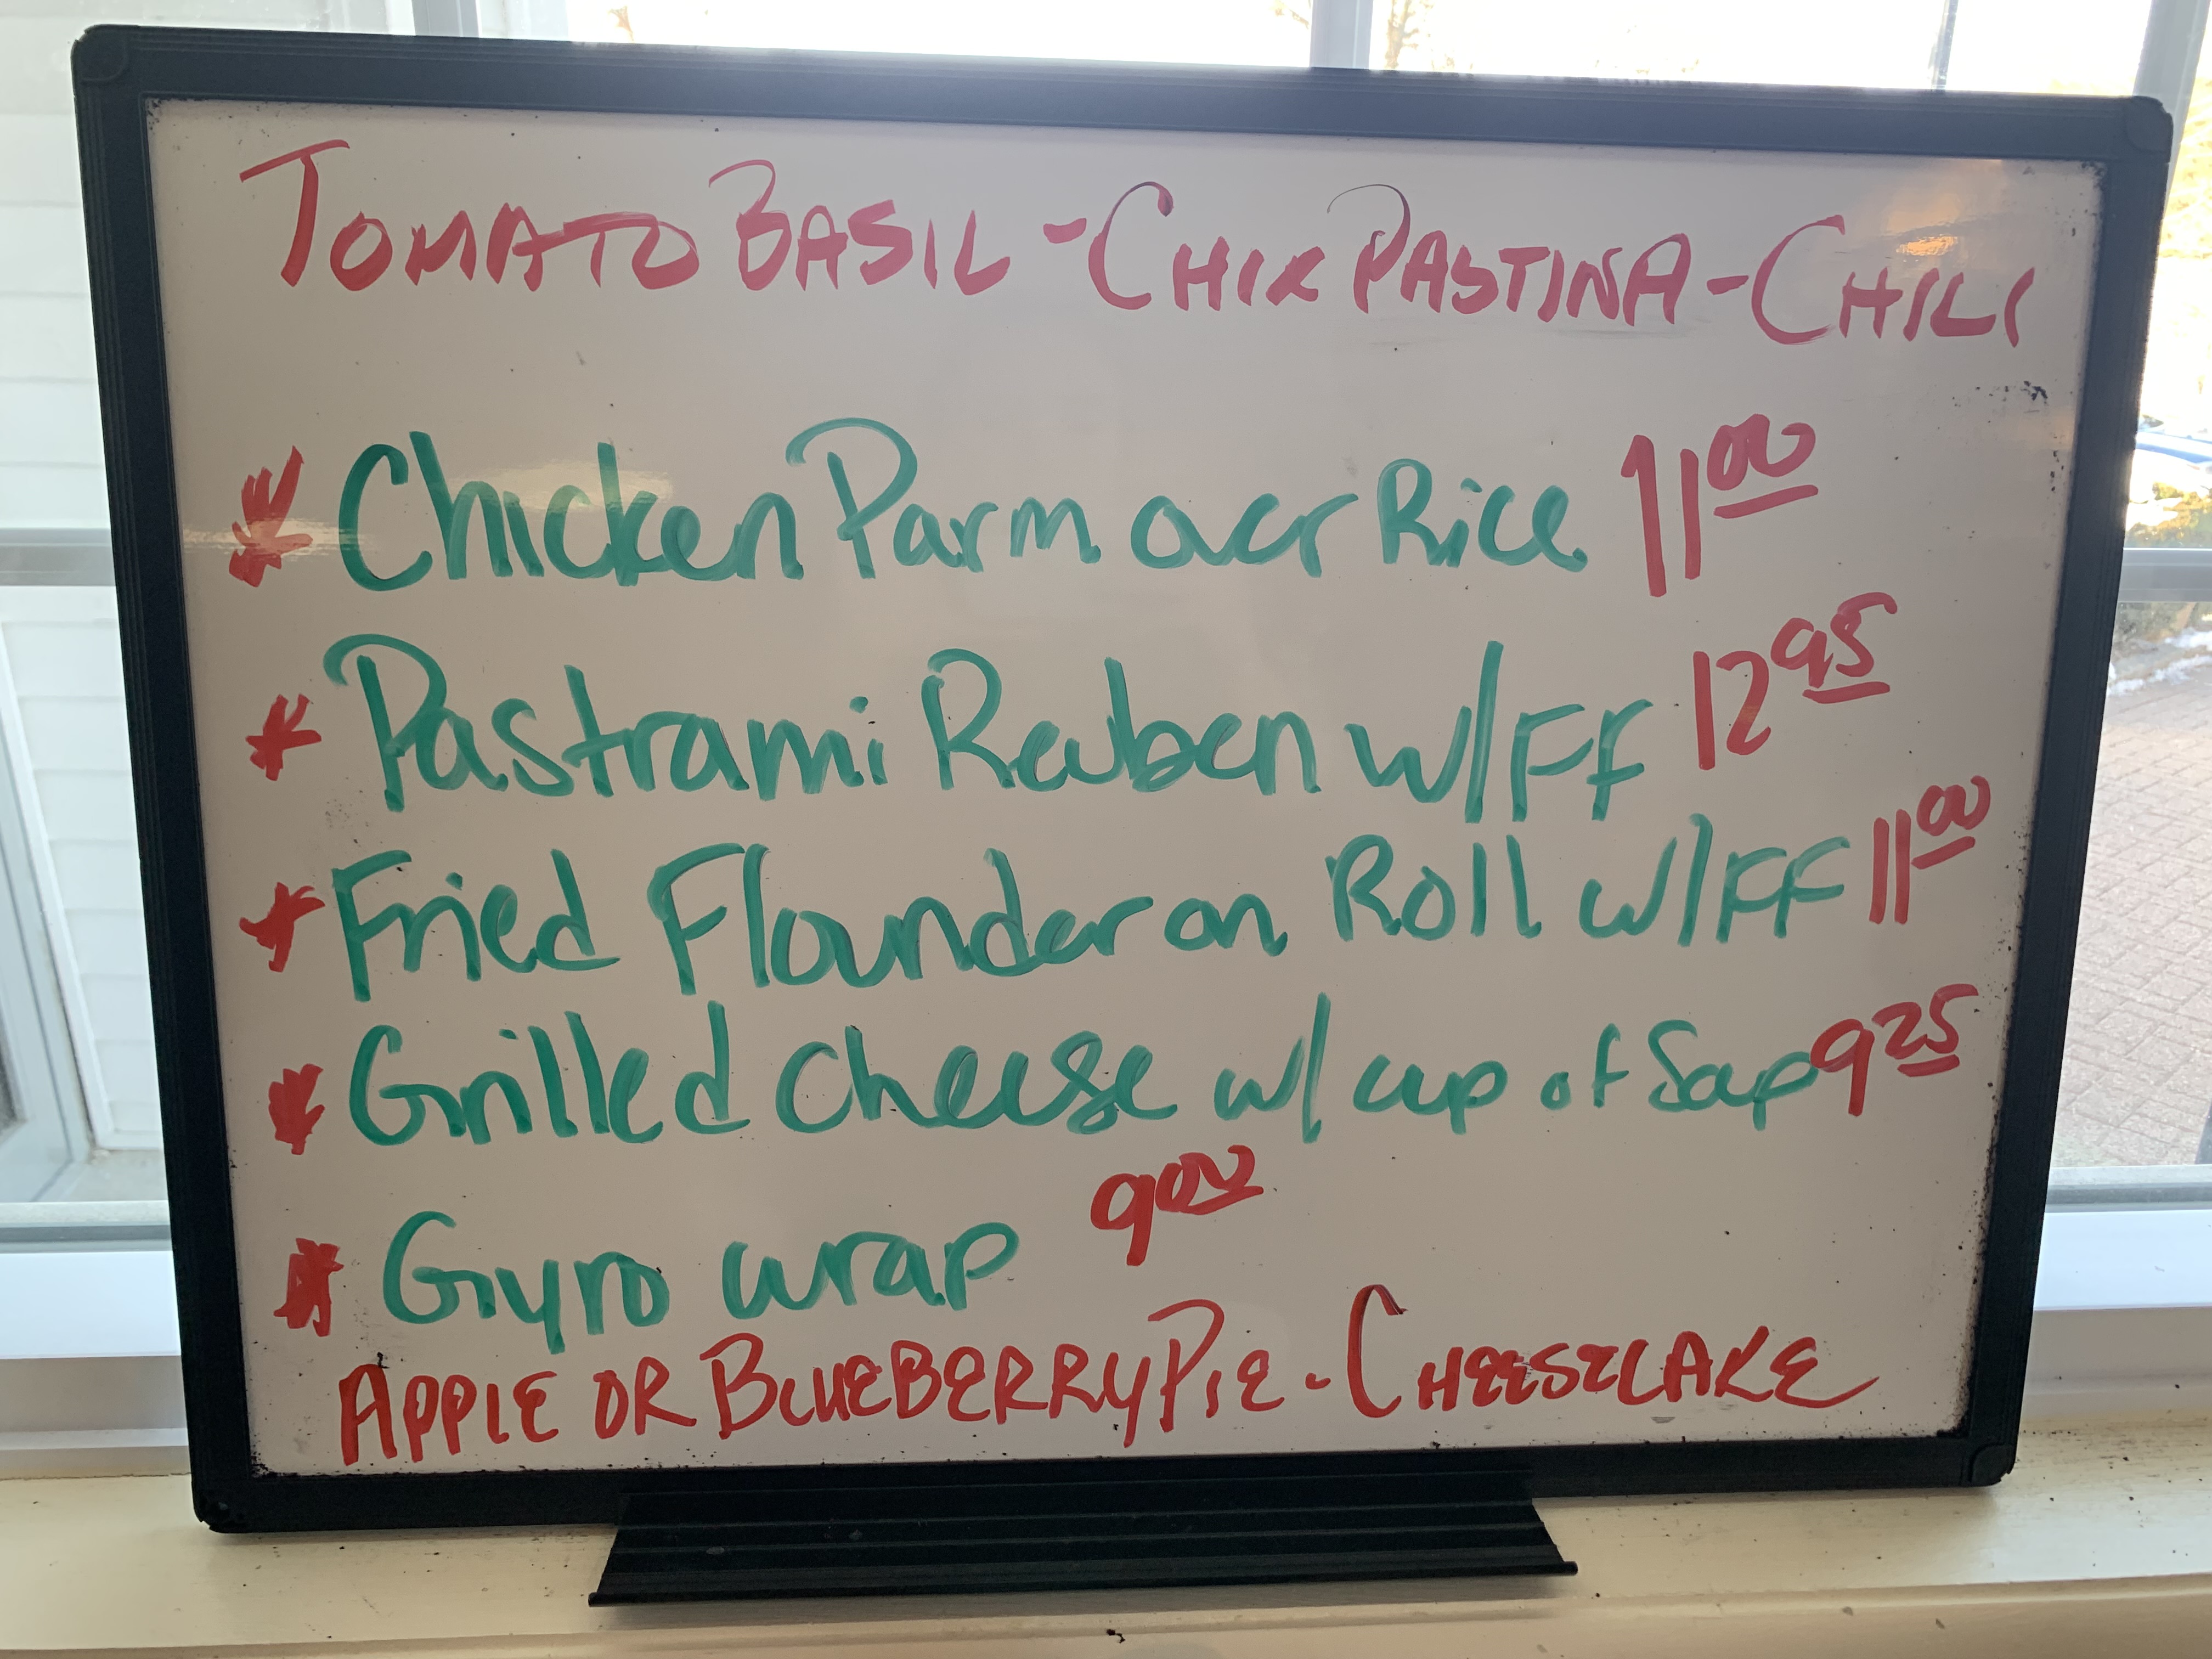 TOMATO BASIL - CHIX PASTINA - CHILI
* Chicken Parm over Rice 11 00
* Pastrami Reuben w/ FF 12 95
* Fried Flounder on Roll w/ FF 11 00
* Grilled Cheese w/ cup of Soup 9 25
* Gyro wrap 9 00
APPLE OR BLUEBERRY PIE - CHEESECAKE